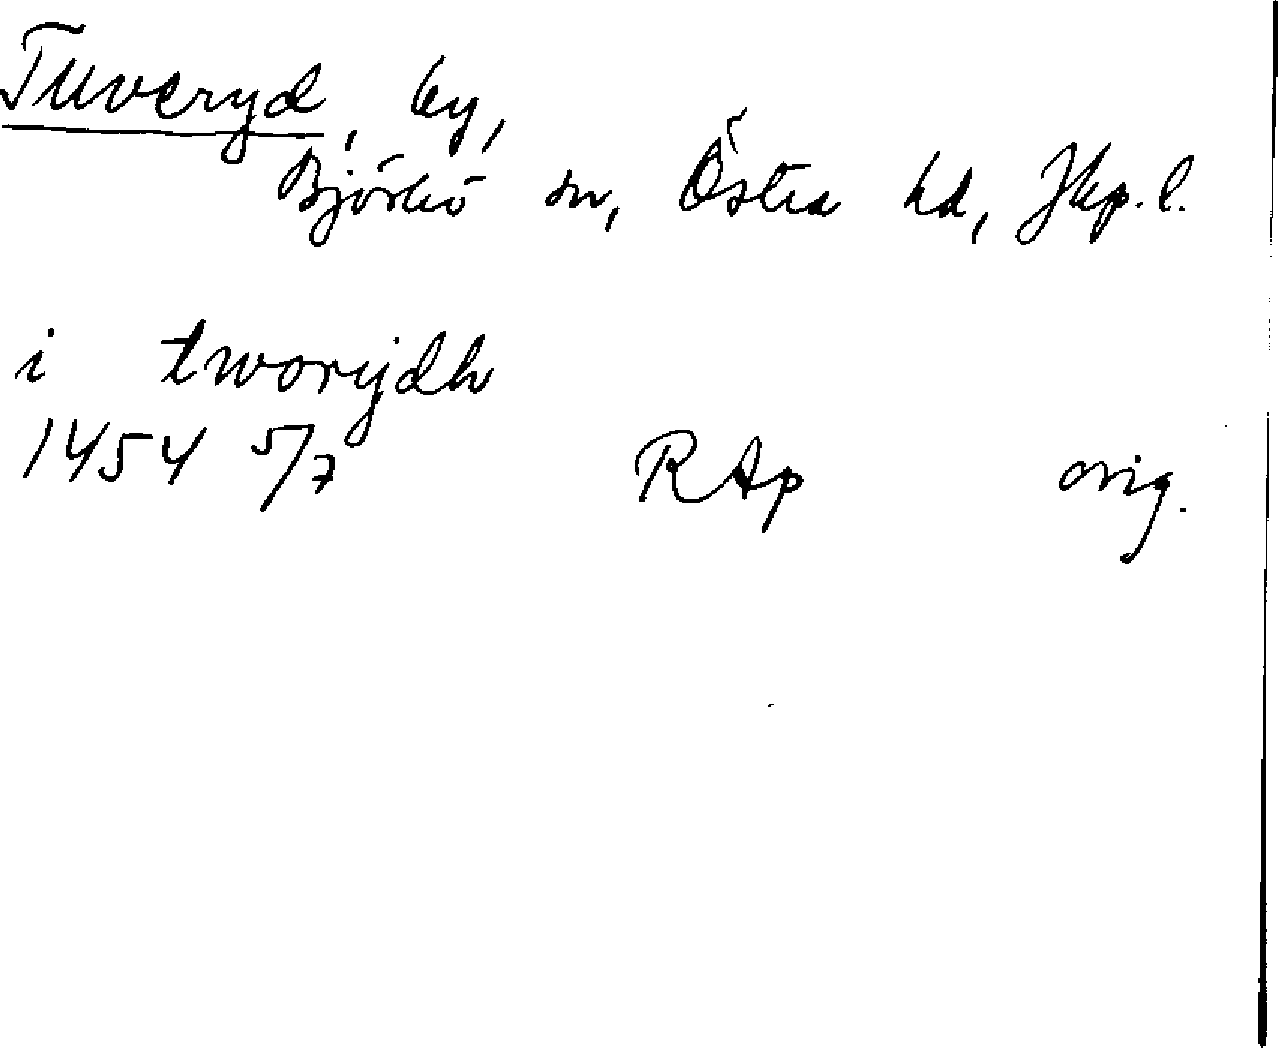 Tuveryd, by,
Björkö sn, Östra hd, Jkp. l.
i tworydh
1454 5/7 RAp orig.